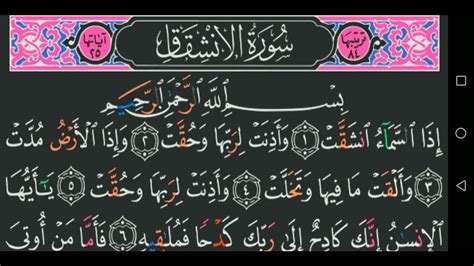 ترتيبها ٨٤ سُورَةُ الِانْشِقَاقِ آياتها ٢٥
بِسْمِ ٱللَّهِ ٱلرَّحْمَٰنِ ٱلرَّحِيمِ
إِذَا ٱلسَّمَآءُ ٱنشَقَّتْ ١ وَأَذِنَتْ لِرَبِّهَا وَحُقَّتْ ٢ وَإِذَا ٱلْأَرْضُ مُدَّتْ
٣ وَأَلْقَتْ مَا فِيهَا وَتَخَلَّتْ ٤ وَأَذِنَتْ لِرَبِّهَا وَحُقَّتْ ٥ يَٰٓأَيُّهَا
ٱلْإِنسَٰنُ إِنَّكَ كَادِحٌ إِلَىٰ رَبِّكَ كَدْحًا فَمُلَٰقِيهِ ٦ فَأَمَّا مَنْ أُوتِىَ